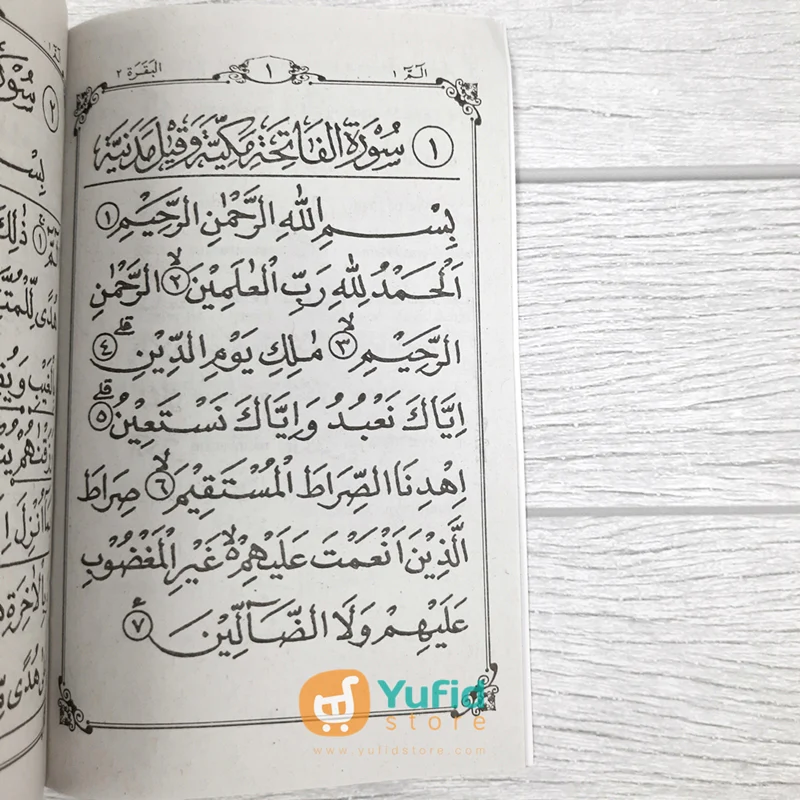 الٓمّٓ ١
١
البقرة ٢
١ سُوْرَةُ الفَاتِحَةِ مَكِّيَّةٌ وَقِيْلَ مَدَنِيَّةٌ
بِسْـــمِ اللّٰهِ الرَّحْمٰنِ الرَّحِيْمِ ١
اَلْحَمْدُ لِلّٰهِ رَبِّ الْعٰلَمِيْنَ ٢ۙ الرَّحْمٰنِ
الرَّحِيْمِ ٣ۙ مٰلِكِ يَوْمِ الدِّيْنِ ٤ۗ
اِيَّاكَ نَعْبُدُ وَاِيَّاكَ نَسْتَعِيْنُ ٥ۗ
اِهْدِنَا الصِّرَاطَ الْمُسْتَقِيْمَ ٦ۙ صِرَاطَ
الَّذِيْنَ اَنْعَمْتَ عَلَيْهِمْ ۙ غَيْرِ الْمَغْضُوْبِ
عَلَيْهِمْ وَلَا الضَّاۤلِّيْنَ ٧
Yufid
store
www.yufidstore.com